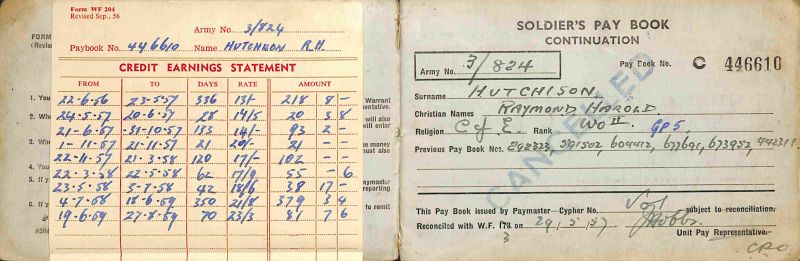 Form WF 204
Revised Sep., 56
Army No. 3/824
Paybook No. 446610 Name HUTCHISON R.H.
CREDIT EARNINGS STATEMENT
FROM TO DAYS RATE AMOUNT
22-6-56 23-5-57 336 13/- 218 8 -
24-5-57 20-6-57 28 14/5 20 3 8
21-6-57 31-10-57 133 14/- 93 2 -
1-11-57 21-11-57 21 20/- 21 - -
22-11-57 21-3-58 120 17/- 102 - -
22-3-58 22-5-58 62 17/9 55 - 6
23-5-58 3-7-58 42 18/6 38 17 -
4-7-58 18-6-59 350 21/8 379 3 4
19-6-59 27-8-59 70 23/3 81 7 6
FORM
(Revise
1. You
2. Whe
3. Wh
4. You
5. If y
6. If y
Warrant
entative.
will also
will enter
e money
must also
aymaster
reporting
to remit
SOLDIER'S PAY BOOK
CONTINUATION
Army No. 3/824 Pay Book No. C 446610
Surname HUTCHISON
Christian Names RAYMOND HAROLD
Religion C of E. Rank WO II GP5
Previous Pay Book Nos. 591502, 604412, 677691, 673952, 442311
CANCELLED
This Pay Book issued by Paymaster—Cypher No. subject to reconciliation.
Reconciled with W.F. 178 on 29/5/57
3
Unit Pay Representative.
CPO